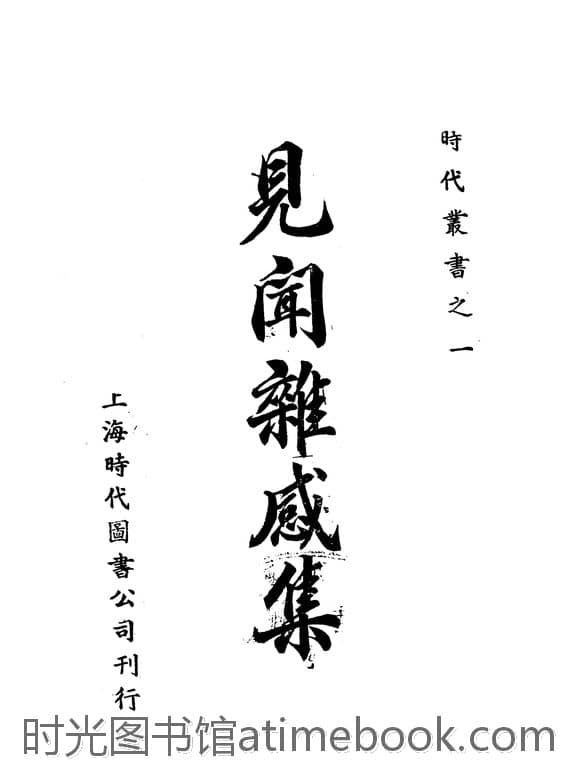 時代叢書之一
見聞雜感集
上海時代圖書公司刊行
时光图书馆atimebook.com